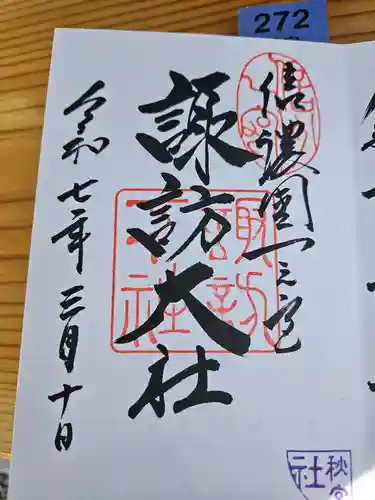 272
信濃國一之宮
諏訪大社
令和七年三月十日
諏訪
大社
秋宮
社